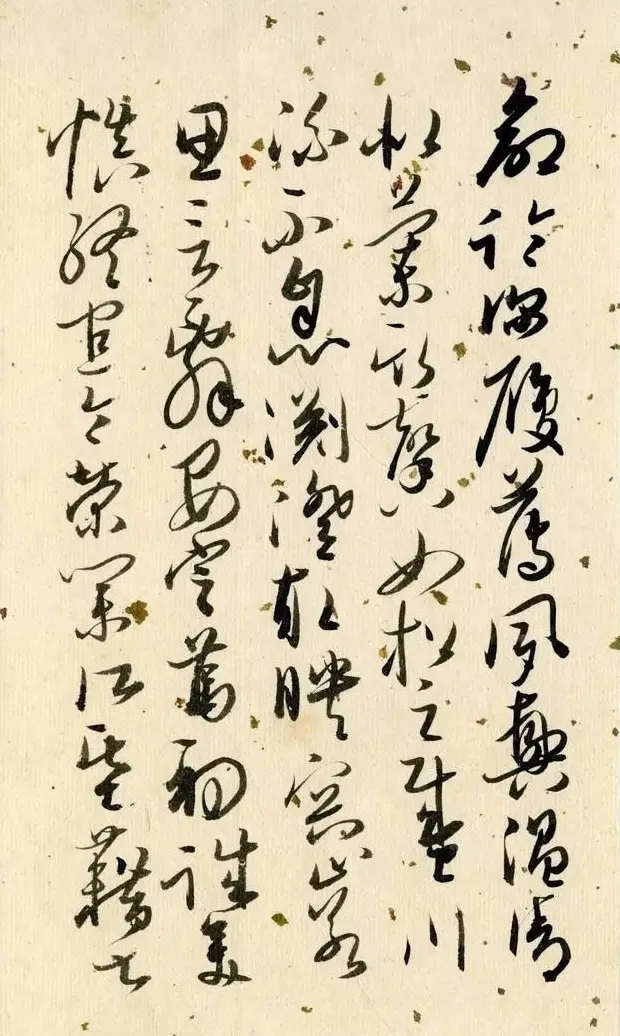 命臨深履薄夙興溫凊
似蘭斯馨如松之盛川
流不息淵澄取映容止若
思言辭安定篤初誠美
慎終宜令榮業所基藉甚